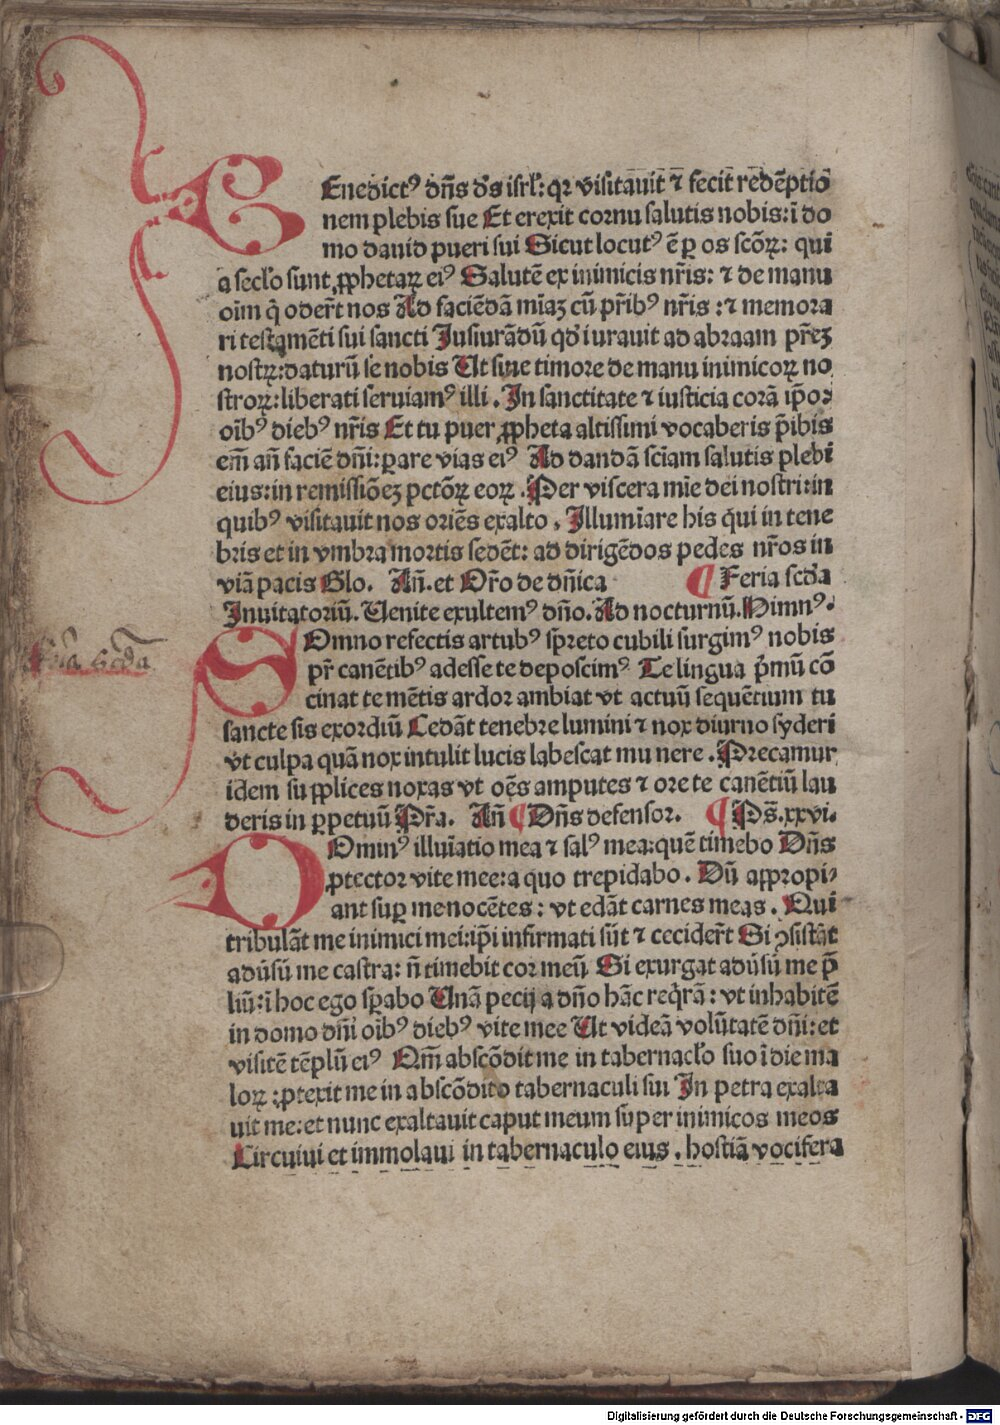 BEnedictꝰ dn̄s dꝰs isrl̄: qꝛ visitauit ⁊ fecit redēptio
nem plebis sue Et erexit cornu salutis nobis: ī do
mo dauid pueri sui Sicut locutꝰ ē ꝑ os scōꝝ: qui
a secl̄o sunt ꝓphetaꝝ eiꝰ Salutē ex inimicis nr̄is: ⁊ de manu
oīm q̄ oder̄t nos Ad faciēdā mīaꝫ cū pr̄ibꝰ nr̄is : ⁊ memora
ri testamēti sui sancti Iusiurādū qđ iurauit ad abraam pr̄eꝫ
nostꝝ: daturū se nobis Ut sine timore de manu inimicoꝝ no
stroꝝ: liberati seruiamꝰ illi . In sanctitate ⁊ iusticia corā ip̄o:
oībꝰ diebꝰ nr̄is Et tu puer ꝓpheta altissimi vocaberis p̄ibis
em̄ an̄ faciē dn̄i: ꝑare vias eiꝰ Ad dandā sciam salutis plebi
eius: in remissiōeꝫ pctōꝝ eoꝝ . Per viscera mīe dei nostri: in
quibꝰ visitauit nos oriēs exalto . Illumīare his q̄ui in tene
bris et in vmbra mortis sedēt: ad dirigēdos pedes nr̄os in
viā pacis Glo. An̄. et Or̄o de dn̄ica ¶ Feria scđa
Inuitatoriū. Uenite exultemꝰ dn̄o. Ad nocturnū. Himnꝰ.
SOmno refectis artubꝰ sp̄reto cubili surgimꝰ nobis
pr̄ canētibꝰ adesse te deposcimꝰ Te lingua p̄mū cō
cinat te mētis ardor ambiat vt actuū sequētium tu
sancte sis exordiū Cedāt tenebre lumini ⁊ nox diurno syderi
vt culpa quā nox intulit lucis labescat mu nere . Precamur
idem supplices noxas vt oēs amputes ⁊ ore te canētiū lau
deris in ꝑpetuū Pr̄a. An̄ ¶ Dn̄s defensor. ¶ Ps̄. xxvi.
DOminꝰ illuīatio mea ⁊ salꝰ mea: quē timebo Dn̄s
ꝓtector vite mee: a quo trepidabo . Dū appropi⸗
ant suꝑ me nocētes : vt edāt carnes meas . Qui
tribulāt me inimici mei: ip̄i infirmati sūt ⁊ ceciderūt Si ꝯsistāt
adūsū me castra: n̄ timebit cor meū Si exurgat adūsū me p̄
liū: ī hoc ego sꝑabo Unā pecij a dn̄o hāc req̄rā : vt inhabitē
in domo dn̄i oībꝰ diebꝰ vite mee Ut videā volūtatē dn̄i: et
visitē tēplū eiꝰ Qm̄ abscōdit me in tabernacl̄o suo ī die ma
loꝝ : ꝓtexit me in abscōdito tabernaculi sui In petra exalta
uit me: et nunc exaltauit caput meum super inimicos meos
Circuiui et immolaui in tabernaculo eius . hostiā vocifera
Digitalisierung gefördert durch die Deutsche Forschungsgemeinschaft - DFG